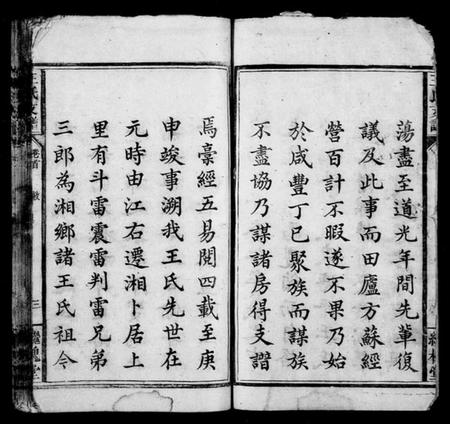 蕩盡至道光年間先輩復
議及此事而田廬方蘇經
營百計不暇遂不果乃始
於咸豐丁巳聚族而謀族
不盡協乃謀諸房得支譜
焉稾經五易閱四載至庚
申竣事溯我王氏先世在
元時由江右遷湘卜居上
里有斗雷震雷判雷兄弟
三郎為湘鄉諸王氏祖今
卷首
三